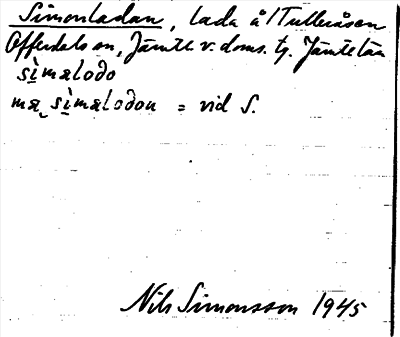 Simonladan, lada å Tulleråsen
Offerdals sn, Jämtl. v. doms. tg. Jämtl. län
sìmælodo
mæ sìmælodon = vid S.
Nils Simonsson 1945